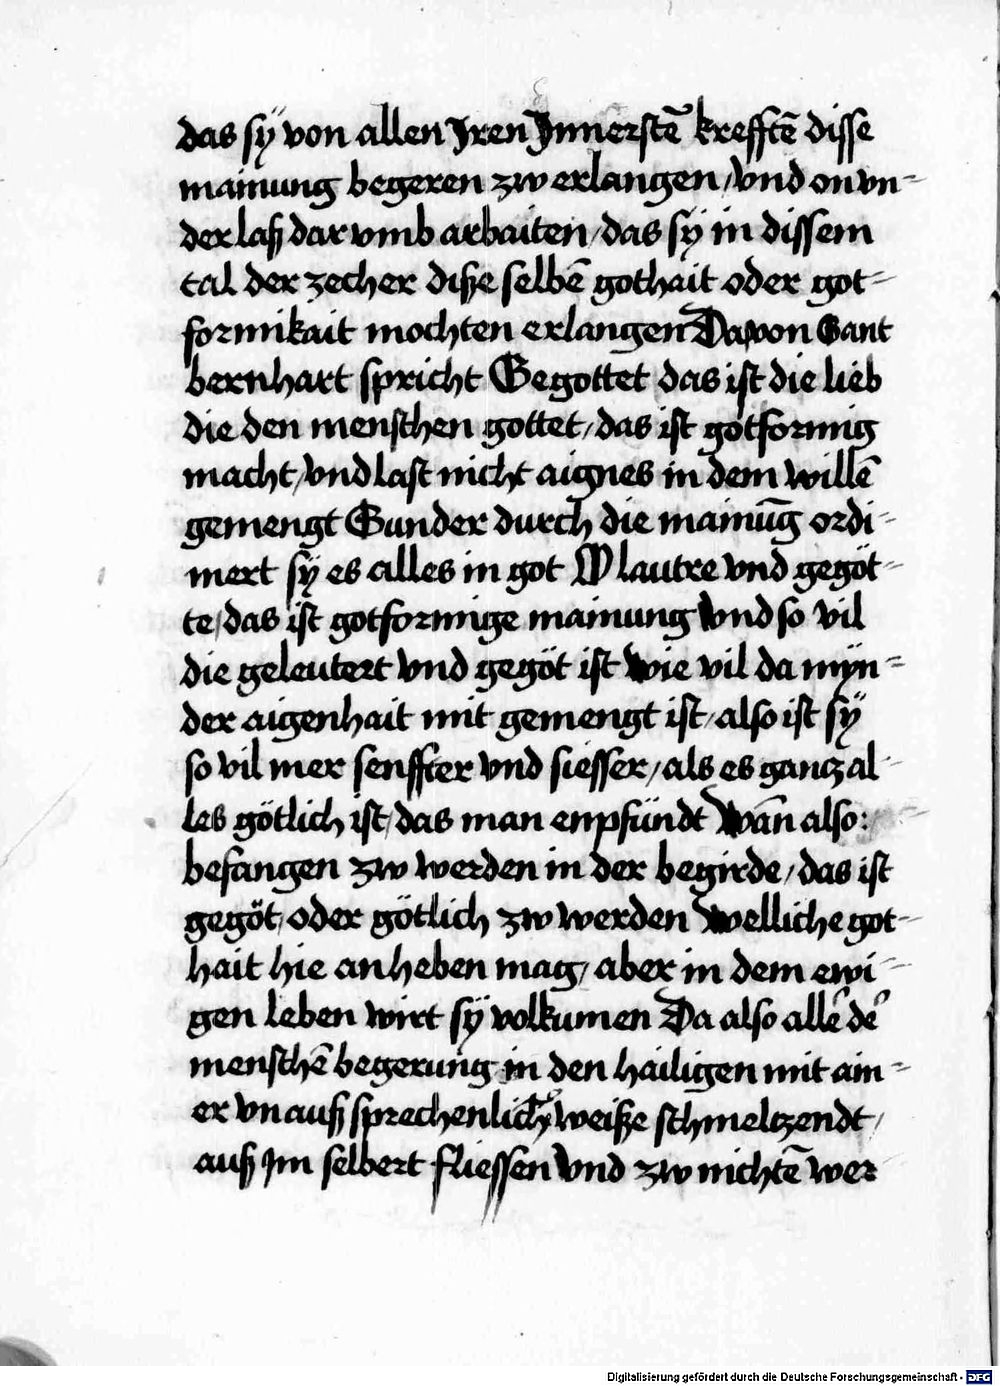 das sÿ von allen Jren Jnnerstē krefftē disse
mainung begeren zw erlangen / vnd on vn=
der laß dar vmb arbaiten / das sÿ in dissem
tal der zecher diße selbē gothait oder got=
formikait mochten erlangen Da von Sant
bernhart spricht Gegottet das ist die lieb
die den menschen gottet / das ist gotformig
macht / vnd last nicht aignes in dem willē
gemengt Sunder durch die mainūg ordi=
niert sÿ es alles in got O lautre vnd gegöt=
te / das ist gotformige mainung vnd so vil
die geleutert vnd gegöt ist wie vil da myn=
der aigenhait mit gemengt ist / also ist sÿ
so vil mer senffter vnd siesser / als es gancz al=
les götlich ist / das man enpfündt wān also:
befangen zw werden in der begirde / das ist
gegöt / oder götlich zw werden welliche got=
hait hie an heben mag / aber in dem ewi=
gen leben wirt sÿ volkumen Da also allē dē
menschē begerung in den hailigen mit ain=
er vnauß sprechenlichen weiße schmelczendt /
auß Jm selbert fliessen vnd zw nichtē wer
Digitalisierung gefördert durch die Deutsche Forschungsgemeinschaft - DFG